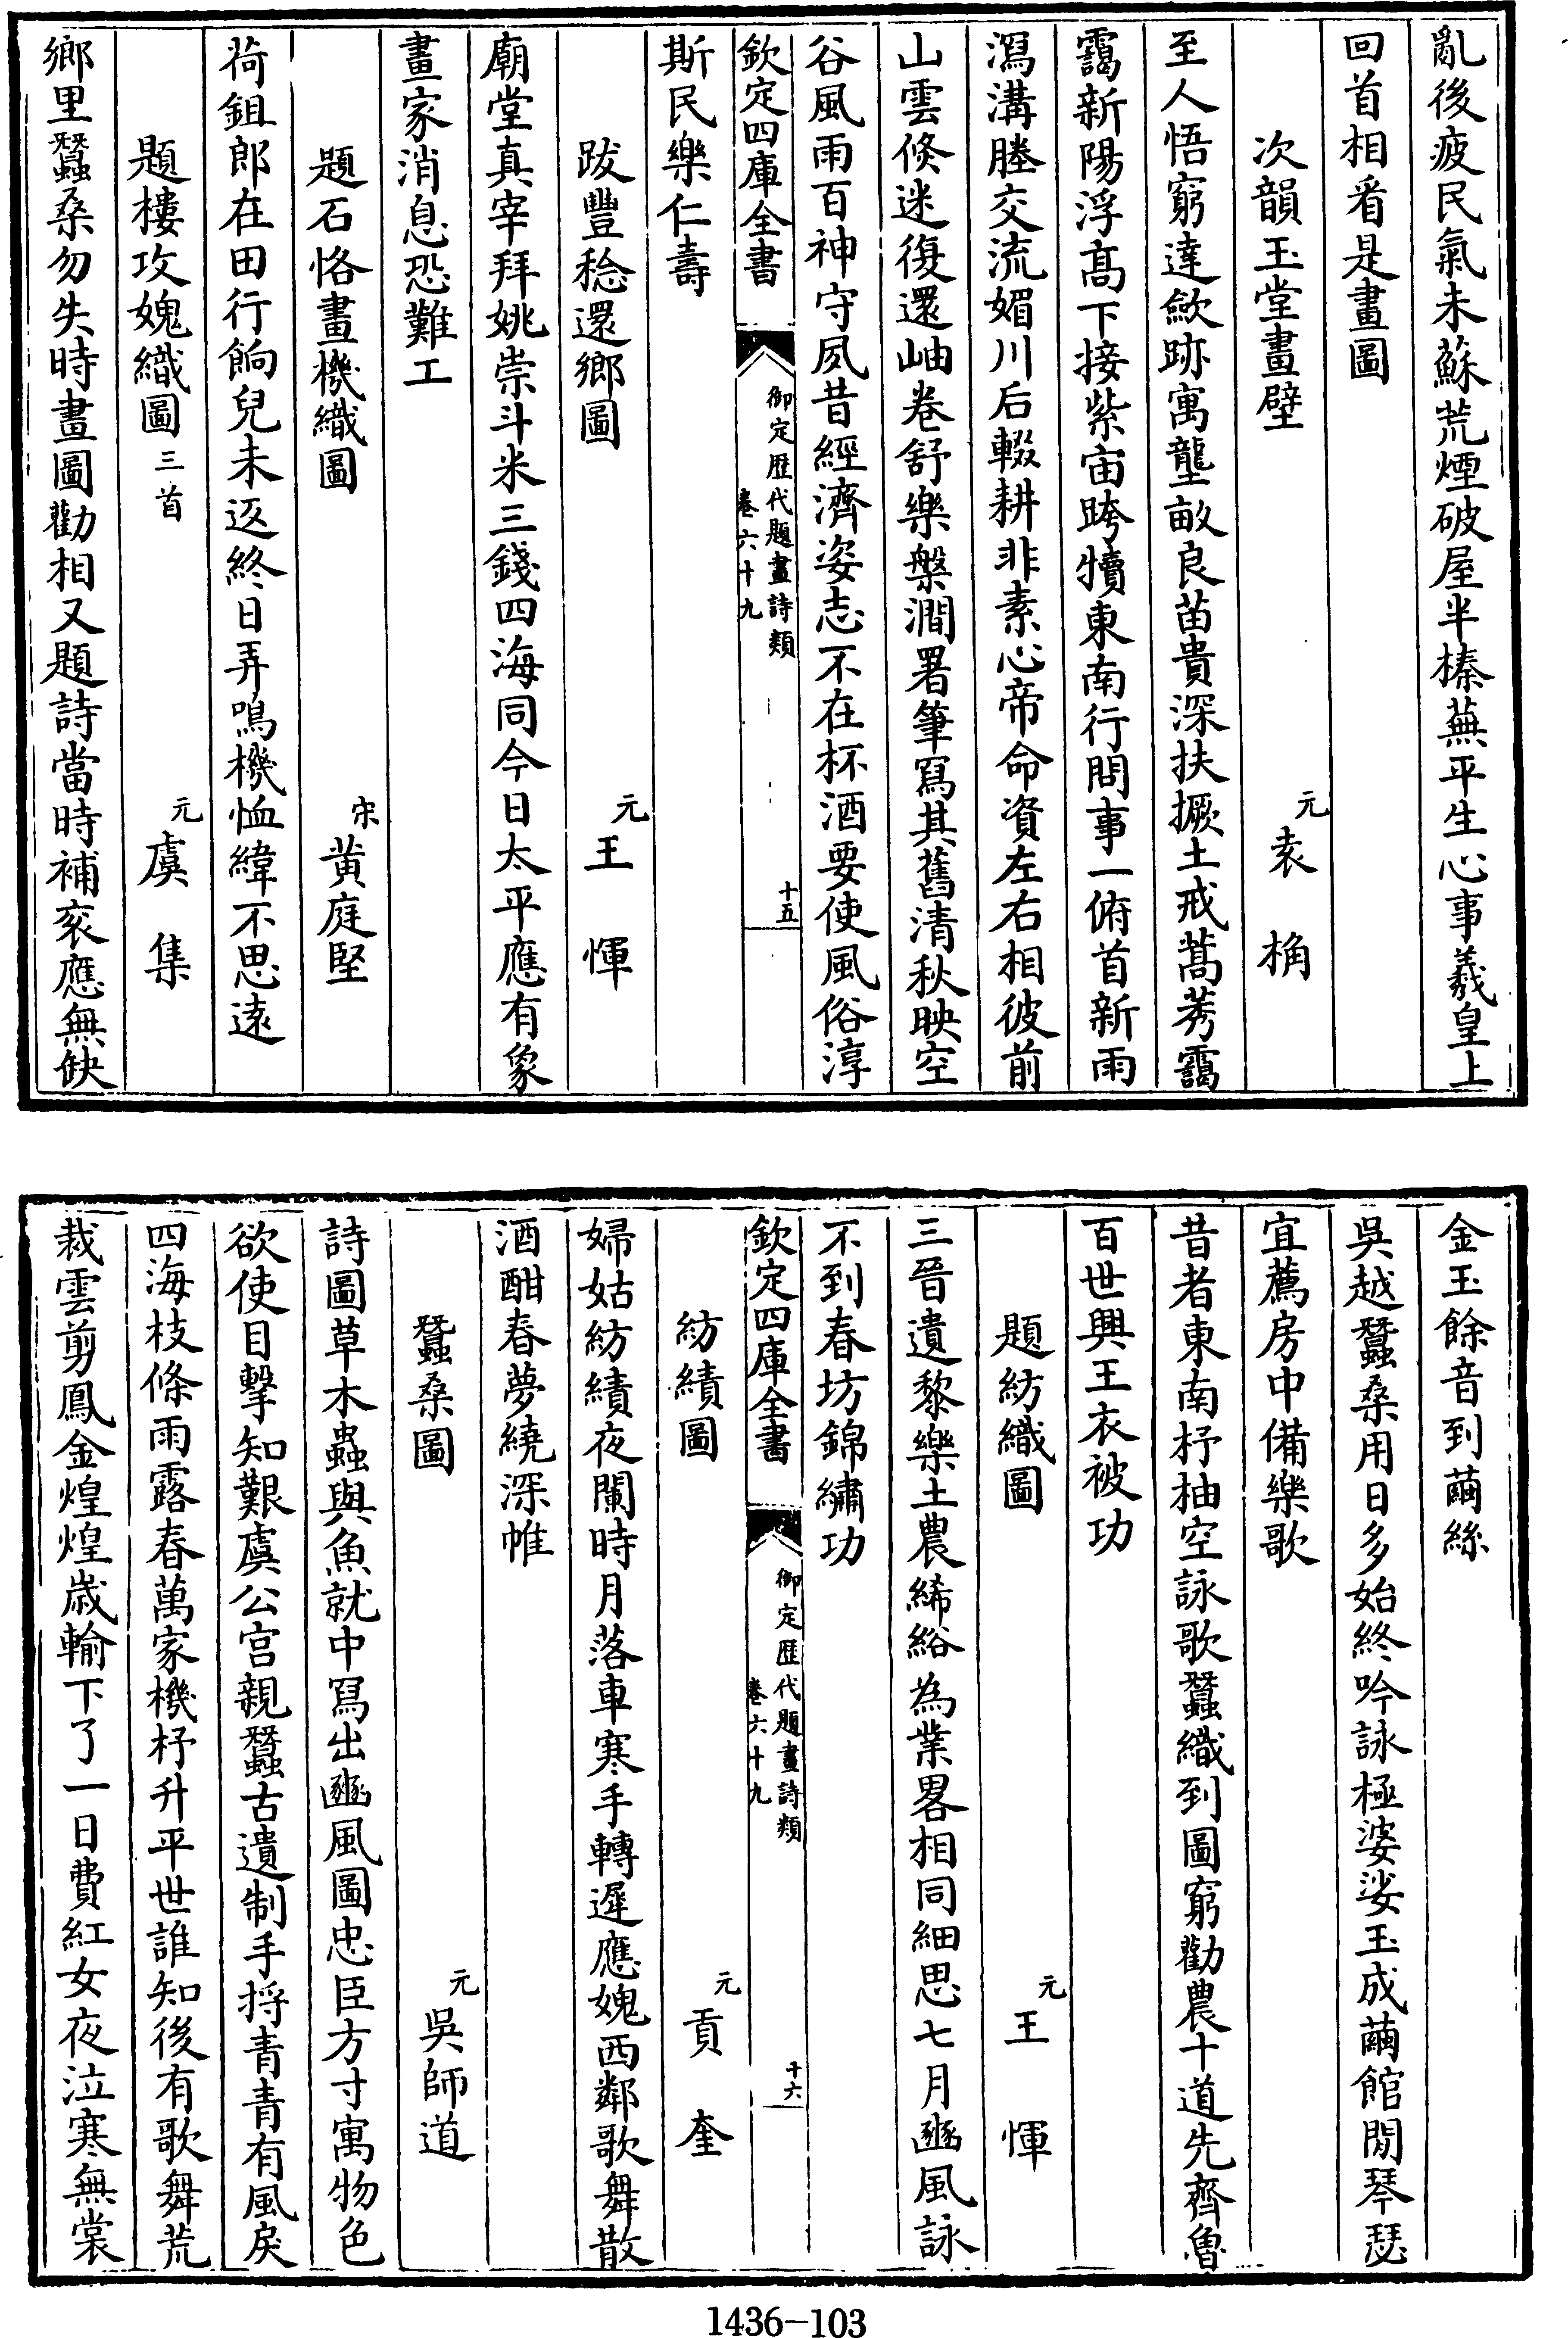 亂後疲民氣未蘇荒煙破屋半榛蕪平生心事羲皇上
回首相看是畫圖
次韻玉堂畫壁
元袁桷
至人悟窮達歛跡寓壟畝良苗貴深扶撅土戒蒿莠靄
靄新陽浮高下接紫宙跨犢東南行問事一俯首新雨
瀉溝塍交流媚川后輟耕非素心帝命資左右相彼前
山雲倐迷復還岫卷舒樂槃澗署筆寫其舊清秋映空
谷風雨百神守夙昔經濟姿志不在杯酒要使風俗淳
欽定四庫全書
御定歷代題畫詩類
卷六十九
十五
斯民樂仁壽
跋豐稔還鄉圖
元王惲
廟堂真宰拜姚崇斗米三錢四海同今日太平應有象
畫家消息恐難工
題石恪畫機織圖
宋黄庭堅
荷鉏郎在田行餉兒未返終日弄鳴機恤緯不思遠
題樓攻媿織圖三首
元虞集
鄉里蠶桑勿失時畫圖勸相又題詩當時補衮應無缺
金玉餘音到繭絲
吳越蠶桑用日多始終吟詠極婆娑玉成繭館閒琴瑟
宜薦房中備樂歌
昔者東南杼柚空詠歌蠶織到圖窮勸農十道先齊魯
百世興王衣被功
題紡織圖
元王惲
三晉遺黎樂土農絺綌為業畧相同細思七月豳風詠
不到春坊錦繡功
欽定四庫全書
御定歷代題畫詩類
卷六十九
十六
紡績圖
元貢奎
婦姑紡績夜闌時月落車寒手轉遲應媿西鄰歌舞散
酒酣春夢繞深帷
蠶桑圖
元吳師道
詩圖草木蟲與魚就中寫出豳風圖忠臣方寸寓物色
欲使目擊知艱虞公宫親蠶古遺制手捋青青有風戾
四海枝條雨露春萬家機杼升平世誰知後有歌舞荒
裁雲剪鳳金煌煌歲輸下了一日費紅女夜泣寒無裳
1436-103